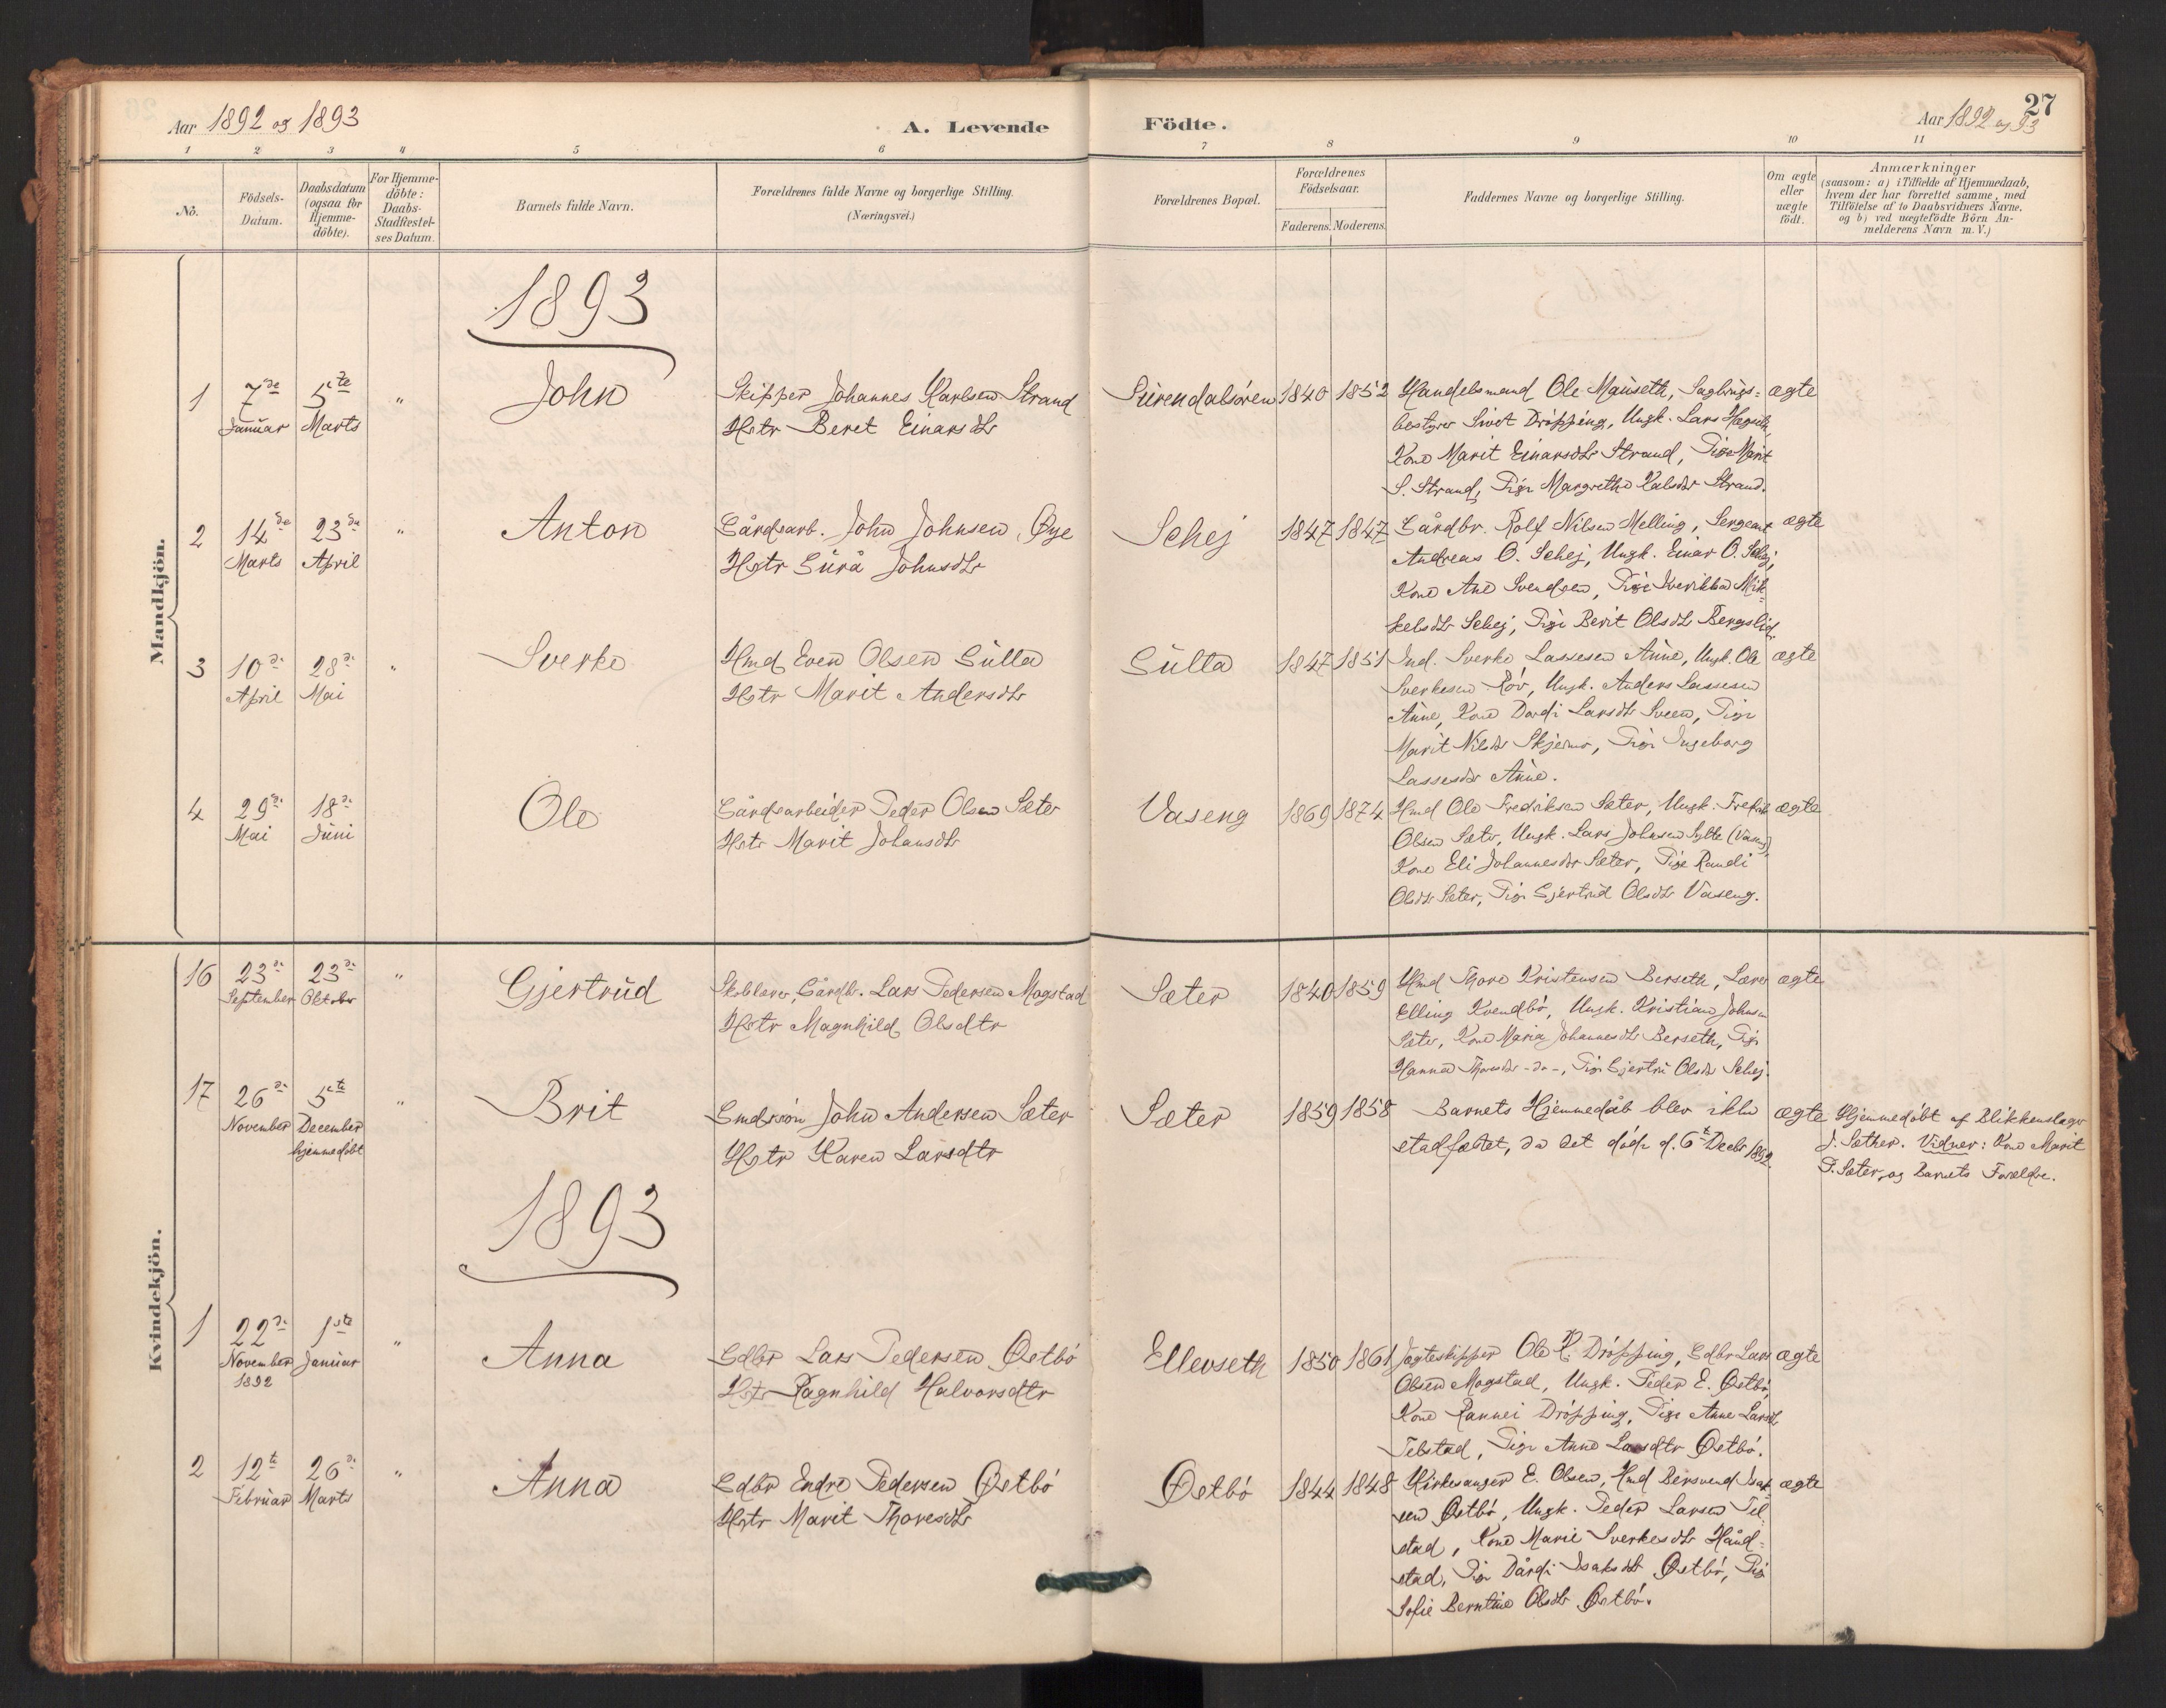 Aar 1892 og 1893
A. Levende
Födte.
27
Aar 1892 og 93
1 2 3 4 5 6 7 8 9 10 11
No.
Födsels-
Datum.
Daabsdatum
(ogsaa for
Hjemme-
döbte).
For Hjemme-
döbte:
Daabs-
Stadfæstel-
ses Datum.
Barnets fulde Navn.
Forældrenes fulde Navne og borgerlige Stilling.
(Næringsvei.)
Forældrenes Bopæl.
Forældrenes
Födselsaar.
Faderens. Moderens.
Faddernes Navne og borgerlige Stilling.
Om ægte
eller
uægte
födt.
Anmærkninger
(saasom: a) i Tilfælde af Hjemmedaab,
hvem der har forrettet samme, med
Tilföielse af to Daabsvidners Navne,
og b) ved uægtefödte Börn An-
melderens Navn m. V.)
Mandkjön.
1893
1
7de
Januar
5te
Marts
"
John
Skipper Johannes Karlsen Strand
Hstr Beret Einarsdtr
Surendalsören
1840 1852
Handelsmand Ole Mauseth, Sagbrugs=
bestyrer Sivert Dröpping, Ungk. Lars
Kone Marit Einarsdtr Strand, Pige Marit
S. Strand, Pige Margrethe Strand.
ægte
2
14de
Marts
23de
April
"
Anton
Gårdsarb. John Johnsen Øye
Hstr Gurå Johnsdtr
Schej
1847 1847
Gårdbr. Rolf Nilsen Melling, Sergeant
Andreas O. Schej, Ungk. Einar O. Schej,
Kone Ane Svendsen, Pige Mik=
kelsdtr Schej, Pige Berit Olsdtr Bergslid.
ægte
3
10de
April
28de
Mai
"
Sverke
Hmd Even Olsen Gulla
Hstr Marit Andersdtr
Gulla
1847 1851
Ind. Sverke Lassesen Aune, Ungk. Ole
Sverkesen Röv, Ungk. Anders Lassesen
Aune, Kone Dordi Larsdtr Sveen, Pige
Marit Nilsdtr Skjermo, Pige Ingeborg
Lassesdtr Aune.
ægte
4
29de
Mai
18de
Juni
Ole
Gårdsarbeider Peder Olsen Sæter
Hstr Marit Johansdtr
Vaseng
1869 1874
Hmd Ole Fredriksen Sæter, Ungk. Fredrik
Olsen Sæter, Ungk. Lars Johnsen Sylte (Vaseng),
Kone Eli Johannesdtr Sæter, Pige Randi
Olsdtr Sæter, Pige Gjertrud Olsdtr Vaseng.
ægte
Kvindekjön.
16
23de
September
23de
Oktober
"
Gjertrud
Skolelærer, Gårdbr. Lars Pedersen Mogstad
Hstr Magnhild Olsdtr
Sæter
1840 1859
Hmd Thore Kristensen Berseth, Lærer
Elling Kvendbö, Ungk. Kristian Johnsen
Sæter, Kone Maria Johannesdtr Berseth, Pige
Hanna Thoresdtr -do-, Pige Gjertru Olsdtr Schej.
ægte
17
26de
November
5te
December
hjemmedöbt
"
Brit
Gmdssön John Andersen Sæter
Hstr Karen Larsdtr
Sæter
1859 1858
Barnets Hjemmedåb blev ikke
stadfæstet, da det döde d. 6te Decbr 1892.
ægte
Hjemmedöbt af Blikkenslager
J. Sæther. Vidner: Kone Marit
P. Sæter, og Barnets Forældre.
1893
1
22de
November
1892
1ste
Januar
"
Anna
Gdbr Lars Pedersen Østbö
Hstr Ragnhild Halvorsdtr
Ellevseth
1850 1861
Jægteskipper Ole P. Dröpping, Gdbr Lars
Olsen Mogstad, Ungk. Peder E. Østbö,
Kone Rannei Dröpping, Pige Anne Larsdtr
Telstad, Pige Anne Larsdtr Østbö.
ægte
2
12te
Februar
26de
Marts
"
Anna
Gdbr Endre Pedersen Østbö
Hstr Marit Thoresdtr
Østbö
1844 1848
Kirkesanger E. Olsen, Hmd Bersvend Isak=
sen Østbö, Ungk. Peder Larsen Tel=
stad, Kone Marie Sverkesdtr Hånd=
stad, Pige Dårdi Isaksdtr Østbö, Pige
Sofie Berntine Olsdtr Østbö.
ægte